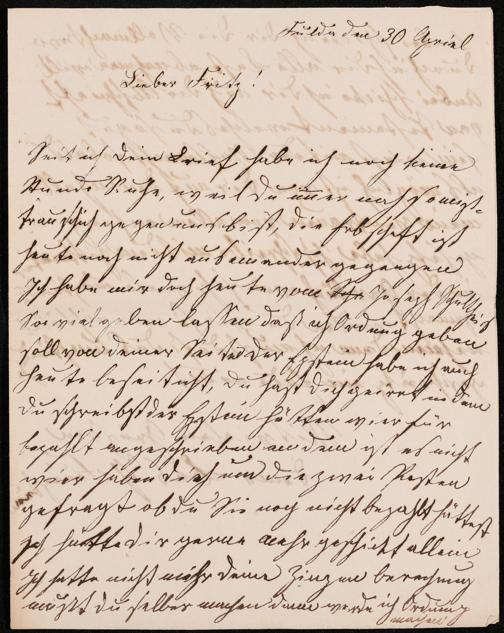 Fulda den 30 Apriel
Lieber Fritz!
Seit ich dein Brief, habe ich noch keine
Stunde Ruhe, weil du immer noch so miß-
trauischich gegen uns bist, die Erbschaft ist
heute noch nicht auseinander gegangen
Ich habe mir doch heute vom Joseph
So viel geben lassen daß ich Ordnung geben
soll von deiner Seite der Epstein habe ich auch
heute beseiticht, du hast dich geirrt in dem
du schreibst der Epstein hätten wier für
bezahlt angeschrieben an dem ist es nicht
wier haben dich um die zwei Posten
gefragt ob du Sie noch nicht bezahlt hättest
Ich hätte dir gerne mehr geschickt allein
Ich hatte nicht mehr deine Zinzen berechnung
mußt du selber machen dann werde ich Ordnung
machen!